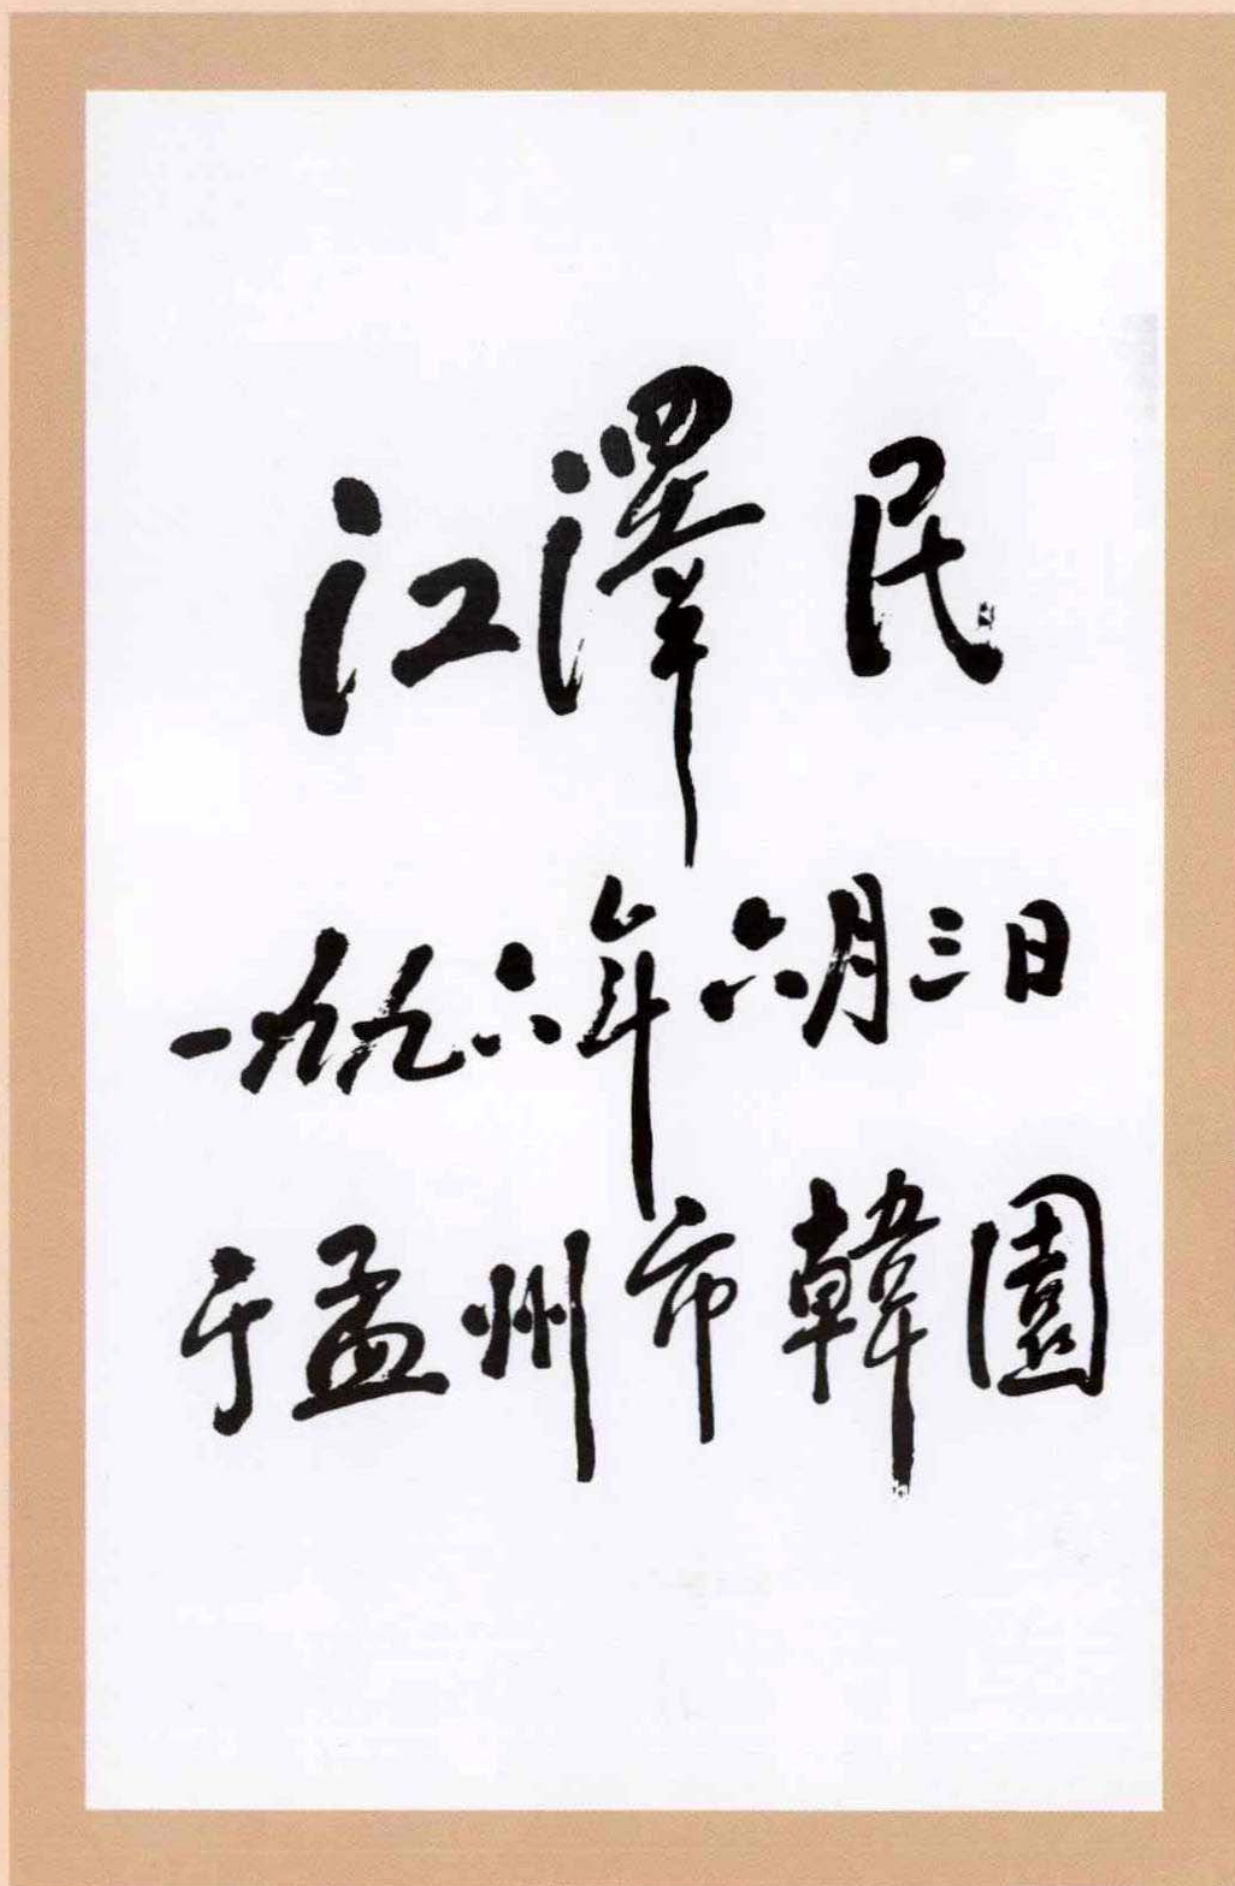 江澤民
一九九六年六月三日
于孟州市韓園